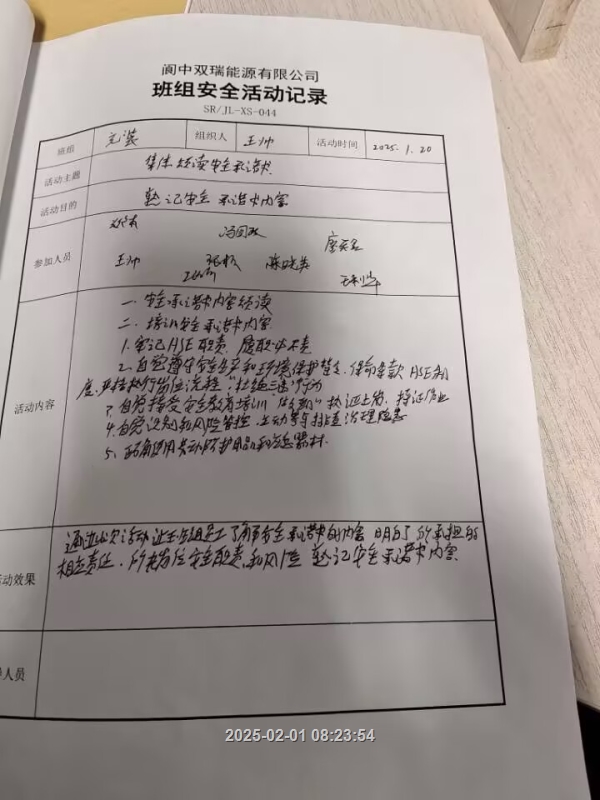 阆中双瑞能源有限公司
班组安全活动记录
SR/JL-XS-044
班组 完装 组织人 王帅 活动时间 2025.1.20
活动主题 集体领读安全承诺书
活动目的 熟记安全承诺书内容
冯国政
参加人员 王帅
活动内容
一、安全承诺书内容领读
二、培训安全承诺书内容
1.牢记HSE职责，履职必尽责
2.自觉遵守安全生产和环境保护禁令、保命条款、HSE制
度，严格执行岗位流程"杜绝三违"行为
3.自觉接受安全教育培训 持证上岗
4.自觉识别和风险管控，主动参与排查治理隐患
5.正确使用劳动防护用品和应急器材
通过此次活动让班组员工了解了安全承诺书的内容 明白了所承担的
相应责任、所在岗位安全职责和风险 熟记安全承诺书内容
动效果
人员
2025-02-01 08:23:54